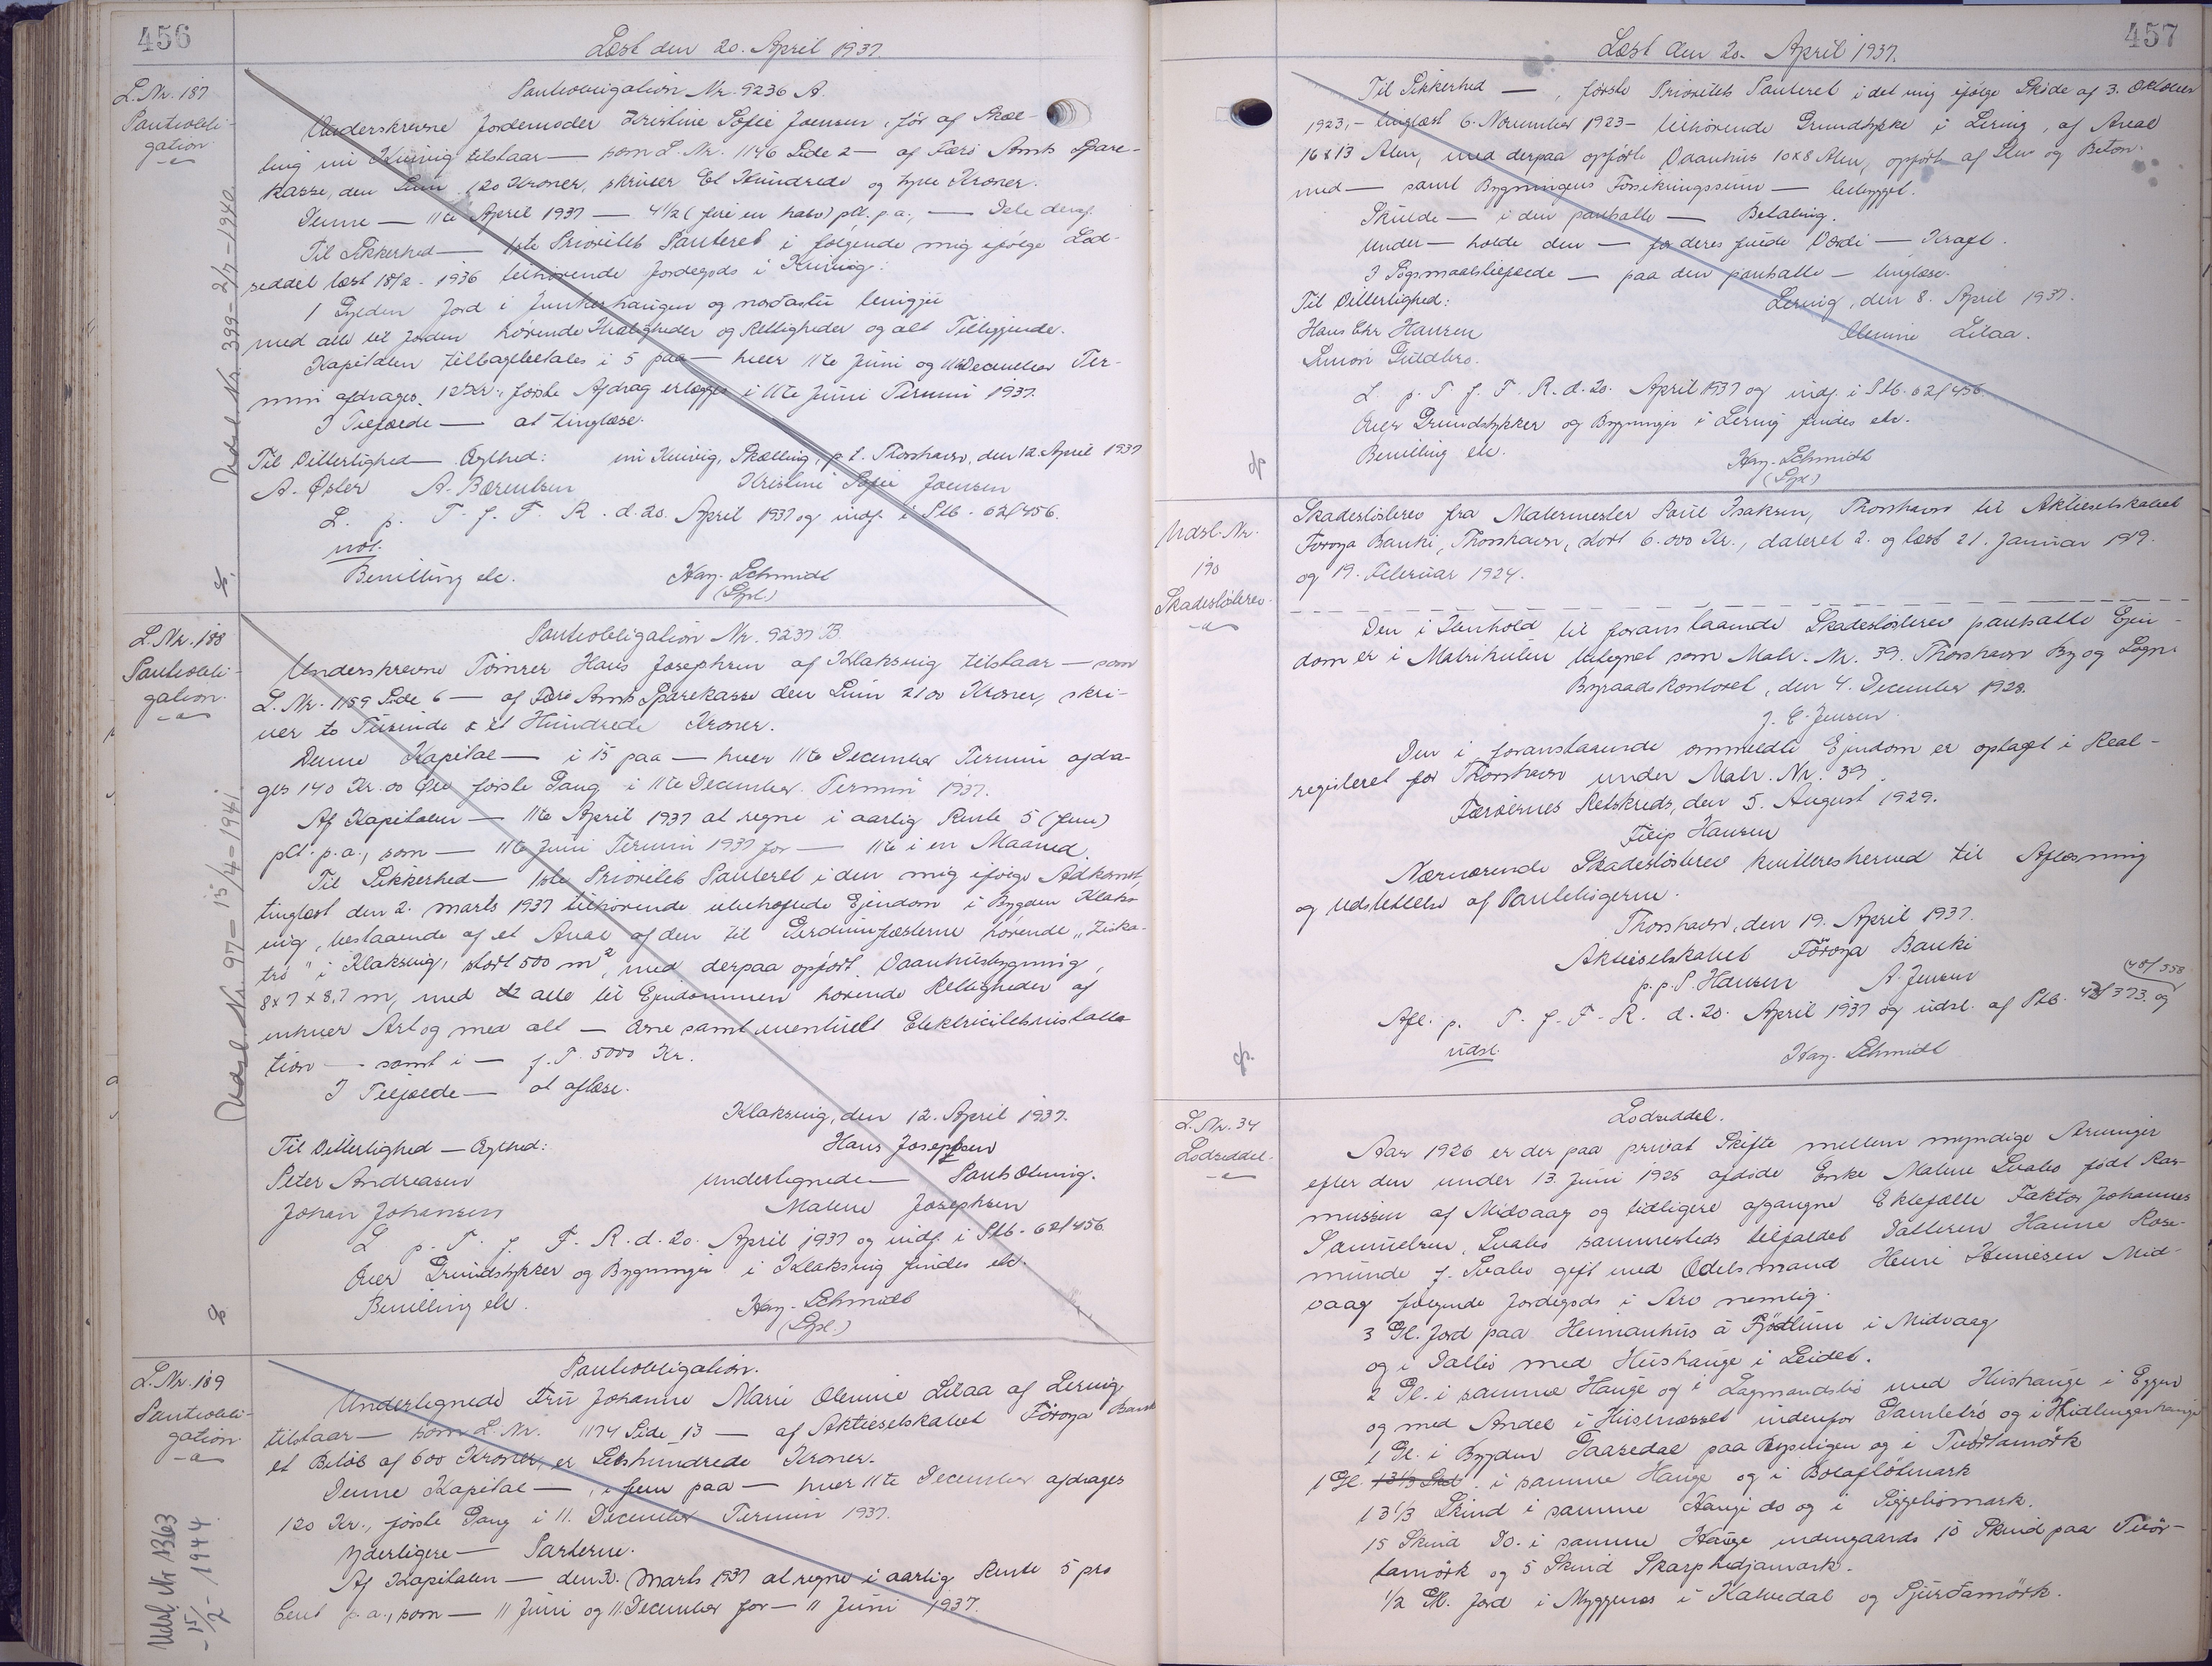 456
Læst den 20. April 1937.
L. Nr. 187
Pantobli-
gation
Pantobligation Nr. 9236 A.
Underskrevne Jordemoder Kristine Sofie Joensen, før af Skæl-
ling nu Kvivig tilstaar — som L. Nr. 1146 Side 2 — af Færø Amts Spare-
kasse, den Sum 120 Kroner, skriver Et Hundrede og tyve Kroner.
Denne — 11te April 1937 — 4½ (fire en halv) pct. p.a., — Dele deraf.
Til Sikkerhed — 1ste Prioritets Panteret i følgende mig ifølge Lod-
seddel læst 18/2. 1936 tilhørende Jordegods i Kvivig:
1 Gylden Jord i Junkerhaugen og norðastu
med alle til Jorden hørende Herligheder og Rettigheder og alt Tilliggende.
Kapitalen tilbagebetales i 5 paa — hver 11te Juni og 11te December Ter-
min afdrages 12 Kr., første Afdrag erlægges i 11te Juni Termin 1937.
I Tilfælde — at tinglæse.
Til Vitterlighed — Ægthed: nu Kvivig, Skælling, p.t. Thorshavn, den 12. April 1937
A. Øster A. Bærentsen Kristine Sofie Joensen
L. p. T. f. F. R. d. 20. April 1937 og indf. i Ptb. 62/456.
not.
Bevilling etc. Hay-Schmidt
(Spl.)
Udsl. Nr. 399 - 2/7 - 1940
L. Nr. 188
Pantobli-
gation
Pantobligation Nr. 9237 B.
Underskrevne Tømrer Hans Josephsen af Klaksvig tilstaar — som
L. Nr. 1159 Side 6 — af Færø Amts Sparekasse den Sum 2100 Kroner, skri-
ver to Tusinde & et Hundrede Kroner.
Denne Kapital — i 15 paa — hver 11te December Termin afdra-
ges 140 Kr. 00 Øre første Gang i 11te December Termin 1937.
Af Kapitalen — 11te April 1937 at regne i aarlig Rente 5 (fem)
pCt. p.a., som — 11te Juni Termin 1937 for — 11te i en Maaned.
Til Sikkerhed — 1ste Prioritets Panteret i den mig ifølge Adkomst,
tinglæst den 2. marts 1937 tilhørende ubehæftede Ejendom i Bygden Klaks-
vig, bestaaende af et Areal af den til Gerdumfæsterne hørende „Ziska-
trö" i Klaksvig, stort 500 m², med derpaa opført Vaanhusbygning,
8 x 7 x 8,7 m, med alle til Ejendommen hørende Rettigheder af
enhver Art og med alt — Orne samt eventuelt Elektricitetsinstalla-
tion — samt i — f. T. 5000 Kr.
I Tilfælde — at aflæse.
Klaksvig, den 12. April 1937.
Til Vitterlighed — Ægthed: Hans Josephsen
Peter Andreasen undertegnede — Pantsætning.
Johan Johansen Malene Josephsen
L. p. T. f. F. R. d. 20. April 1937 og indf. i Ptb. 62/456
Over Grundstykker og Bygninger i Klaksvig findes etc.
Bevilling etc. Hay-Schmidt
(Spl.)
Udsl. Nr. 97 - 15/4 - 1941
L. Nr. 189
Pantobli-
gation
Pantobligation.
Undertegnede Fru Johanne Marie Olevine Lilaa af Lervig
tilstaar — som L. Nr. 1174 Side 13 — af Aktieselskabet Föroya Banki
et Beløb af 600 Kroner, er Sekshundrede Kroner.
Denne Kapital — , i fem paa — hver 11te December afdrages
120 Kr., første Gang i 11. December Termin 1937.
Yderligere — Parterne.
Af Kapitalen — den 30. Marts 1937 at regne i aarlig Rente 5 pro
Cent p.a., som — 11 Juni og 11. December for — 11 Juni 1937.
Udsl. Nr 1363
- 15/2 - 1944
457
Læst den 20. April 1937.
Til Sikkerhed — , første Prioritets Panteret i det mig ifølge Skøde af 3. Oktober
1923, - tinglæst 6. November 1923 - tilhørende Grundstykke i Lervig, af Areal
16 x 13 Alen, med derpaa opførte Vaanhus 10 x 8 Alen, opført af Sten og Beton.
med — samt Bygningens Forsikringssum — bebygget.
Skulde — i den pantsatte — Betaling.
Under — holde den — for deres fulde Værdi — Kraft.
I Søgsmaalstilfælde — paa den pantsatte — tinglæse.
Til Vitterlighed: Lervig, den 8. April 1937.
Hans Chr Hansen Olevine Lilaa.
Simon Guldbro.
L. p. T. f. F. R. d. 20. April 1937 og indf. i Ptb. 62/456
Over Grundstykker og Bygninger i Lervig findes etc.
Bevilling etc. Hay-Schmidt
(Spl.)
Udsl. Nr.
190
Skadesløsbrev
Skadesløsbrev fra Malermester Poul Isaksen, Thorshavn til Aktieselskabet
Foroya Banki, Thorshavn, stort 6.000 Kr., dateret 2. og læst 21. Januar 1919.
og 19. Februar 1924.
Den i Henhold til foranstaaende Skadesløsbrev pantsatte Ejen-
dom er i Matrikulen betegnet som Matr. Nr. 39. Thorshavn By og Sogn.
Byraadskontoret, den 4. December 1928.
J. C. Jensen
Den i foranstaaende ommeldte Ejendom er optaget i Real-
registeret for Thorshavn under Matr. Nr. 39.
Færøernes Retskreds, den 5. August 1929.
Filip Hansen
Nærværende Skadesløsbrev kvitteres herved til Aflæsning
og Udslettelse af Pantebøgerne.
Thorshavn, den 19. April 1937.
Aktieselskabet Föroya Banki
p.p. S. Hansen A. Jensen
Afl. p. T. f. F. R. d. 20. April 1937 og udsl. af Ptb. 43/373. og 48/358
udsl. Hay-Schmidt
L. Nr. 34
Lodseddel
Lodseddel.
Aar 1926 er der paa privat Skifte mellem myndige Arvinger
efter den under 13. Juni 1925 afdøde Enke Malene Svabo født Ras-
mussen af Midvaag og tidligere afgangne Ektefælle Faktor Johannes
Samuelsen, Svabo sammesteds tilfaldet Datteren Hanne Rose-
munde f. Svabo gift med Odelsmand Heini Heinesen Mid-
vaag følgende Jordegods i Arv nemlig:
3 Gl. Jord paa Heimanhus á Fjøtlum i Midvaag
og i Dalbø med Hushauge i Leidet.
2 Gl. i samme Hauge og i Lagmandsbø med Hushauge i Eggen
og med Andel i indenfor Gamletrö og i
1 Gl. i Bygden Gaasedal paa og i
1 Gl. 13⅓ Skd. i samme Hauge og i
13⅓ Skind i samme Hauge do og i
15 Skind Do. i samme Hauge 10 Skind paa Tvör-
tamørk og 5 Skind Skarphedjamark.
½ Gl. Jord i Myggenes i Kalvedal og Sjúrðamörk.